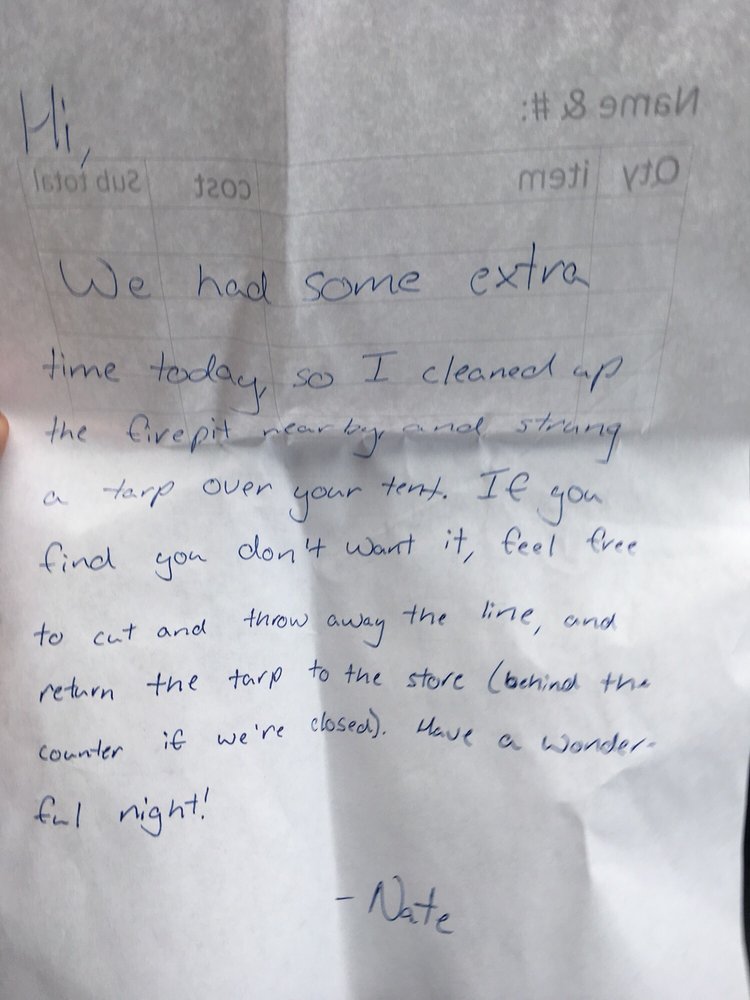 Hi,
Name & #:
Qty item cost Sub total
We had some extra
time today, so I cleaned up
the firepit nearby, and strung
a tarp over your tent. If you
find you don't want it, feel free
to cut and throw away the line, and
return the tarp to the store (behind the
counter if we're closed). Have a wonder-
ful night!
- Nate